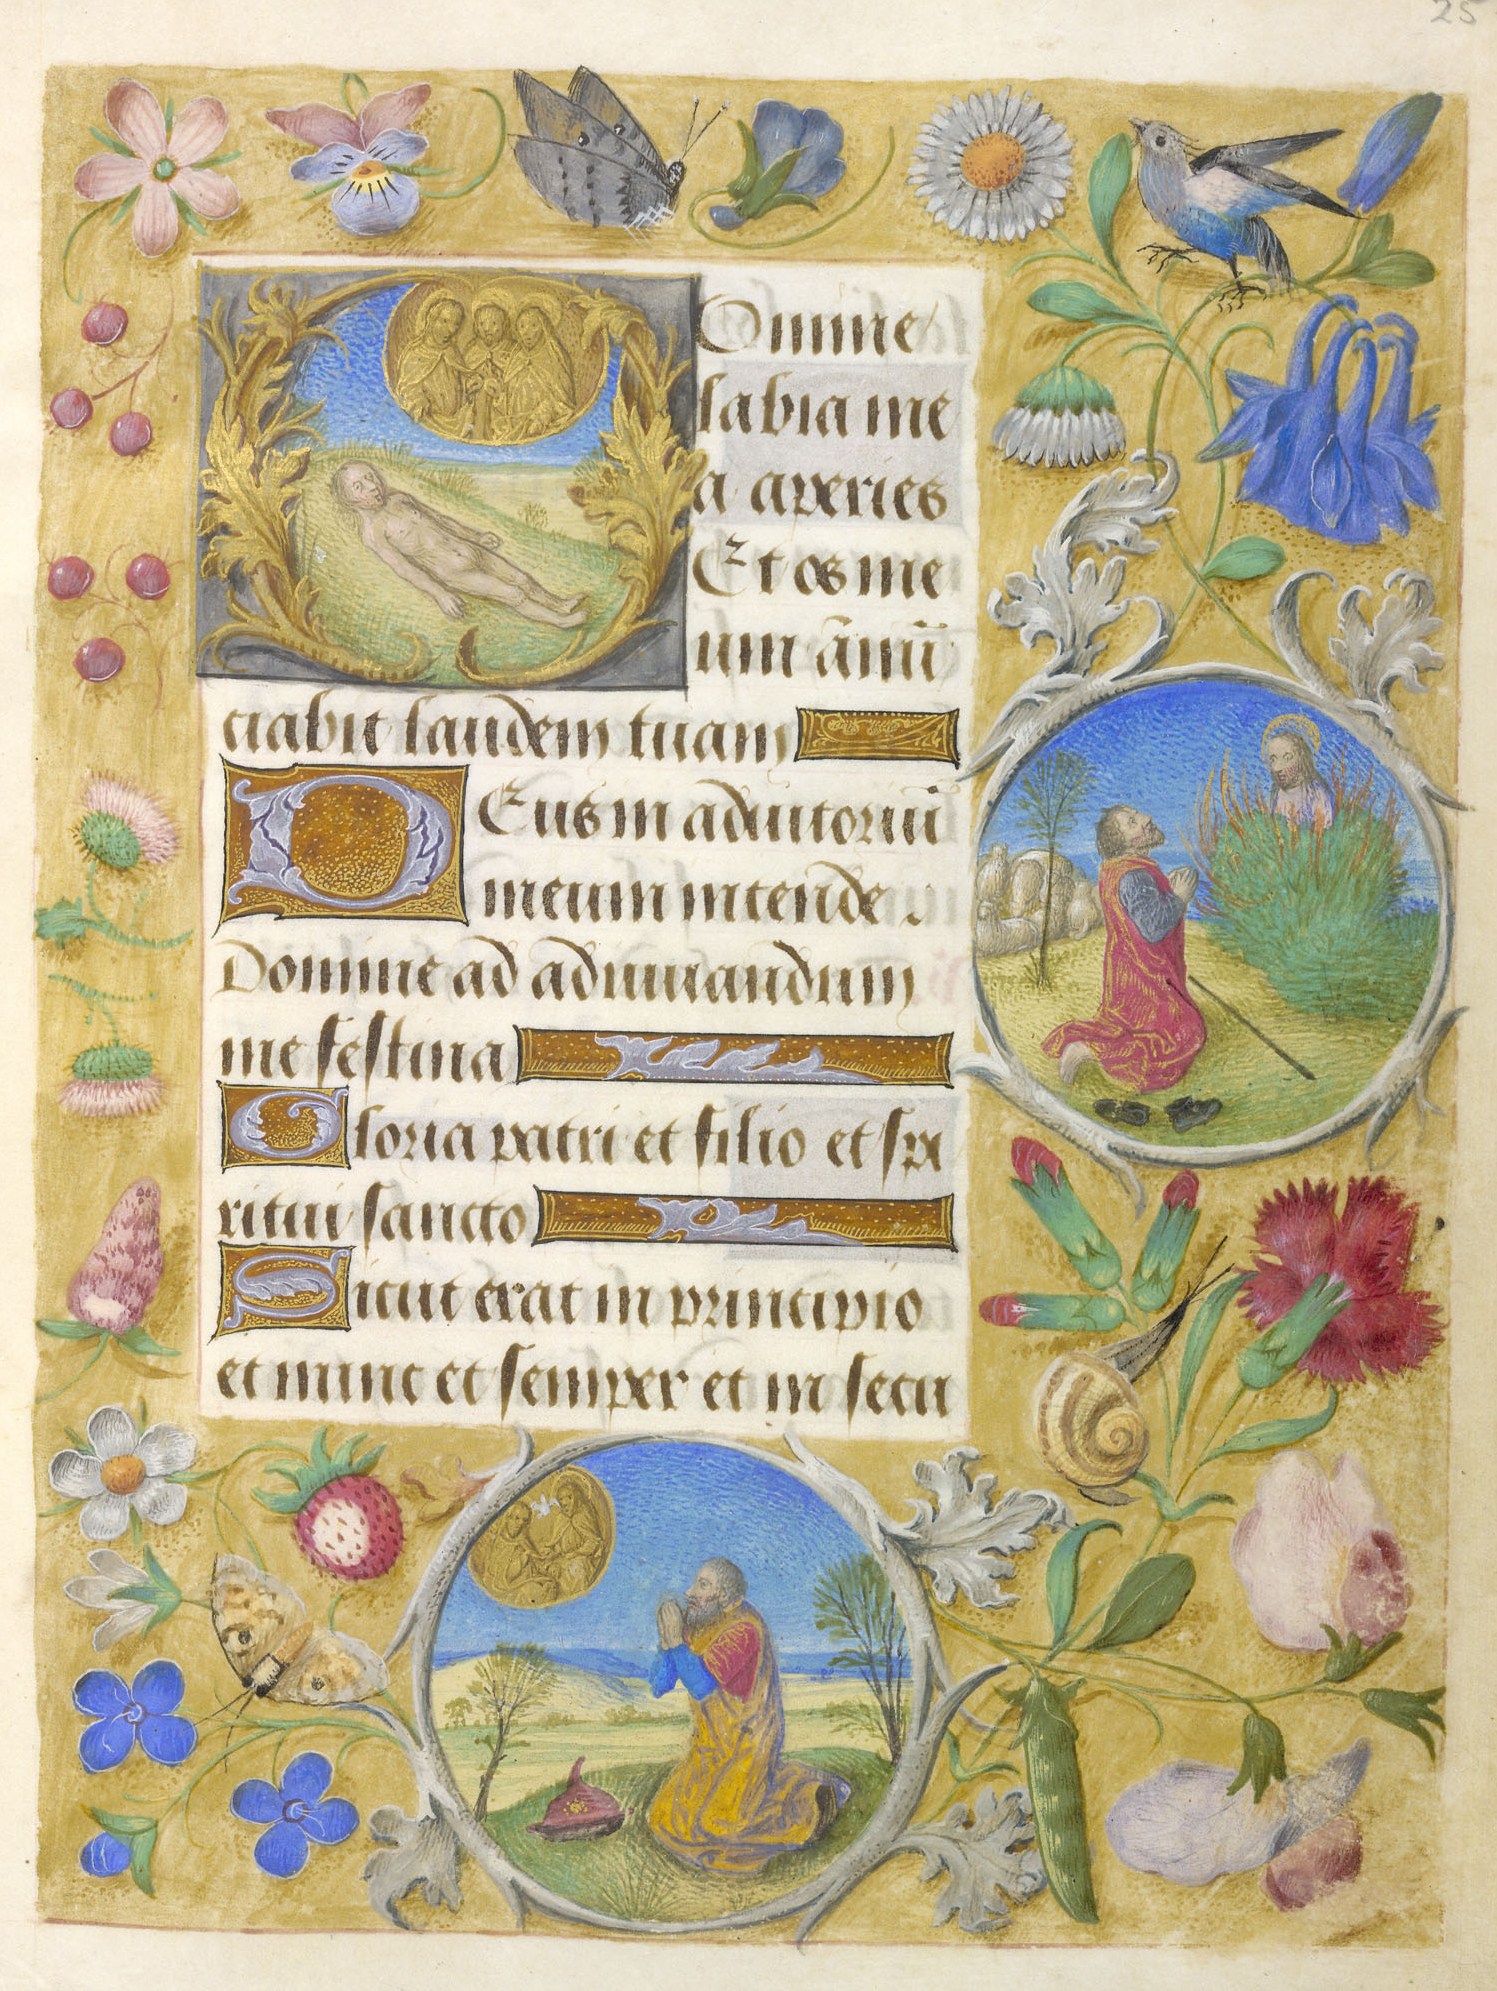 25
Domine
labia me
a aperies
Et os me
um ānū
ciabit laudem tuam
Deus in adiutoriū
meum intende .
Domine ad adiuuandum
me festina
Gloria patri et filio et spi
ritui sancto
Sicut erat in principio
et nunc et semper et in secu